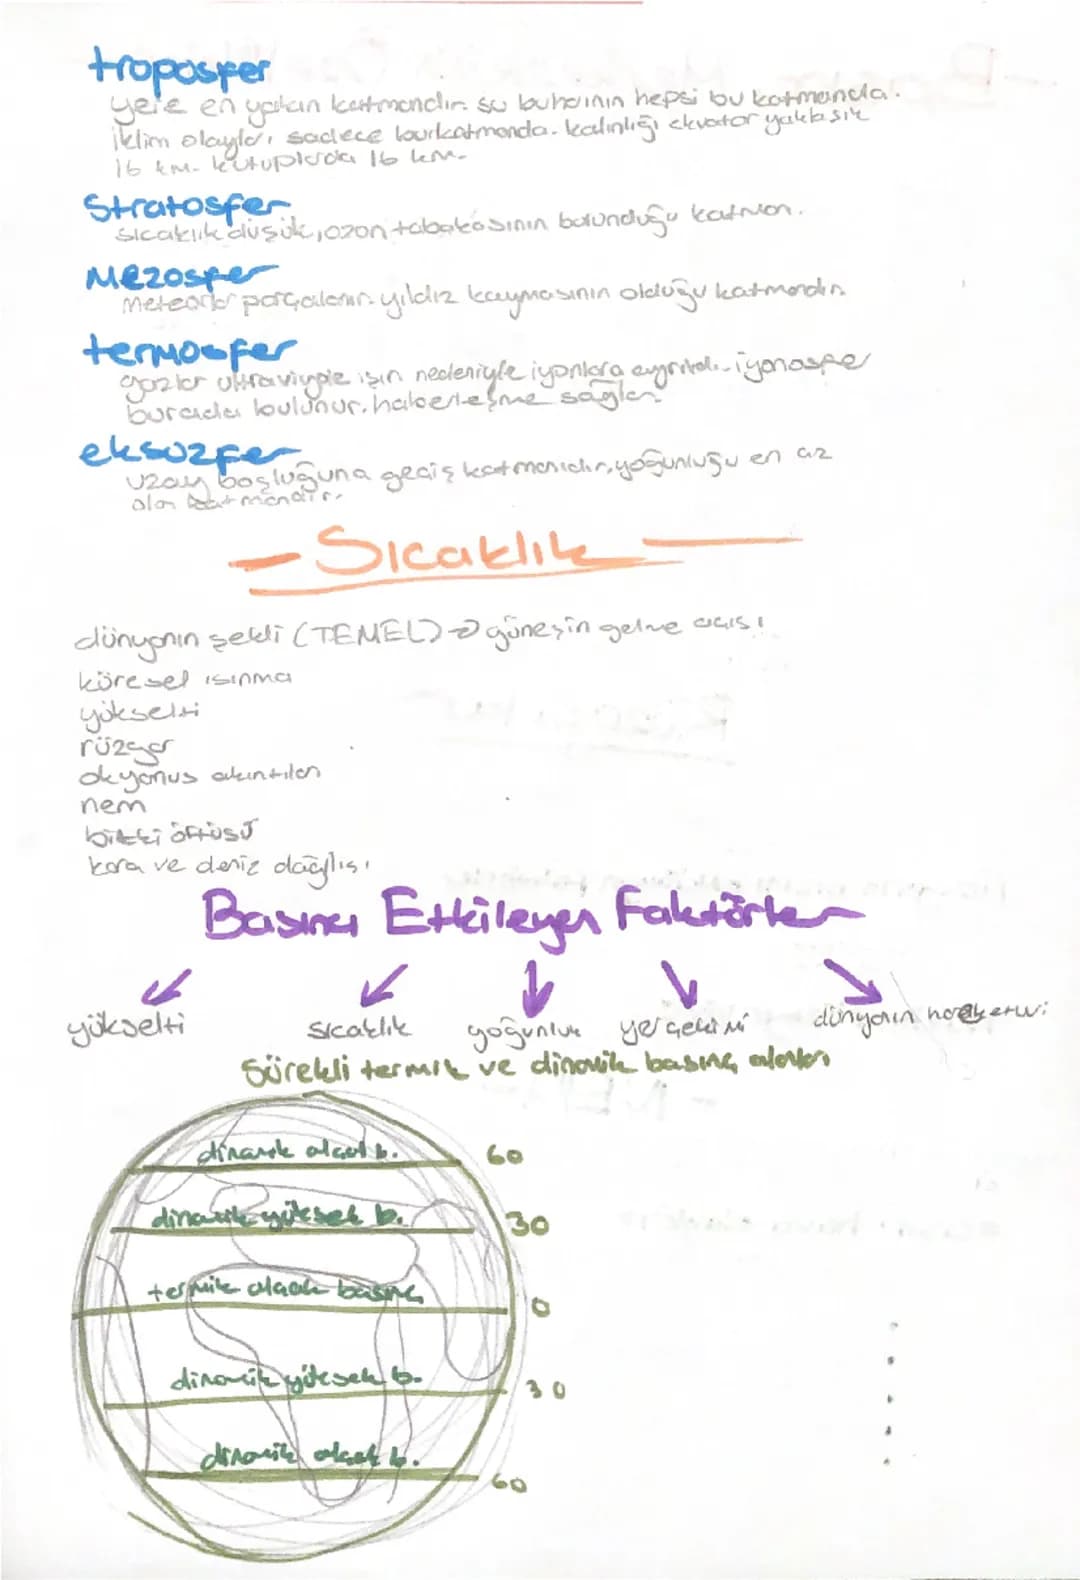 troposfer
yere en yakın katmandır. su buharının hepsi bu katmanda.
iklim olayları sadece bu katmanda. kalınlığı ekvator yaklaşık
16 km. kutuplarda 16 km.
Stratosfer
sıcaklık düşük, ozon tabakasının bulunduğu katman.
Mezosfer
meteorlar parçalanır. yıldız kaymasının olduğu katmandır.
termosfer
gazlar ultraviyole ışın nedeniyle iyonlara ayrılır. iyonosfer
burada bulunur. haberleşme sağlar.
eksozfer
uzay boşluğuna geçiş katmanıdır, yoğunluğu en az
olan katmandır.
- Sıcaklık -
dünyanın şekli (TEMEL) → güneşin gelme açısı
küresel ısınma
yükselti
rüzgar
okyanus akıntıları
nem
bitki örtüsü
kara ve deniz dağılışı
Basıncı Etkileyen Faktörler
yükselti sıcaklık yoğunluk yerçekimi dünyanın hareketi
Sürekli termik ve dinamik basınç alanları
dinamik alçak b. 60
dinamik yüksek b. 30
termik alçak basınç 0
dinamik yüksek b. 30
dinamik alçak b. 60